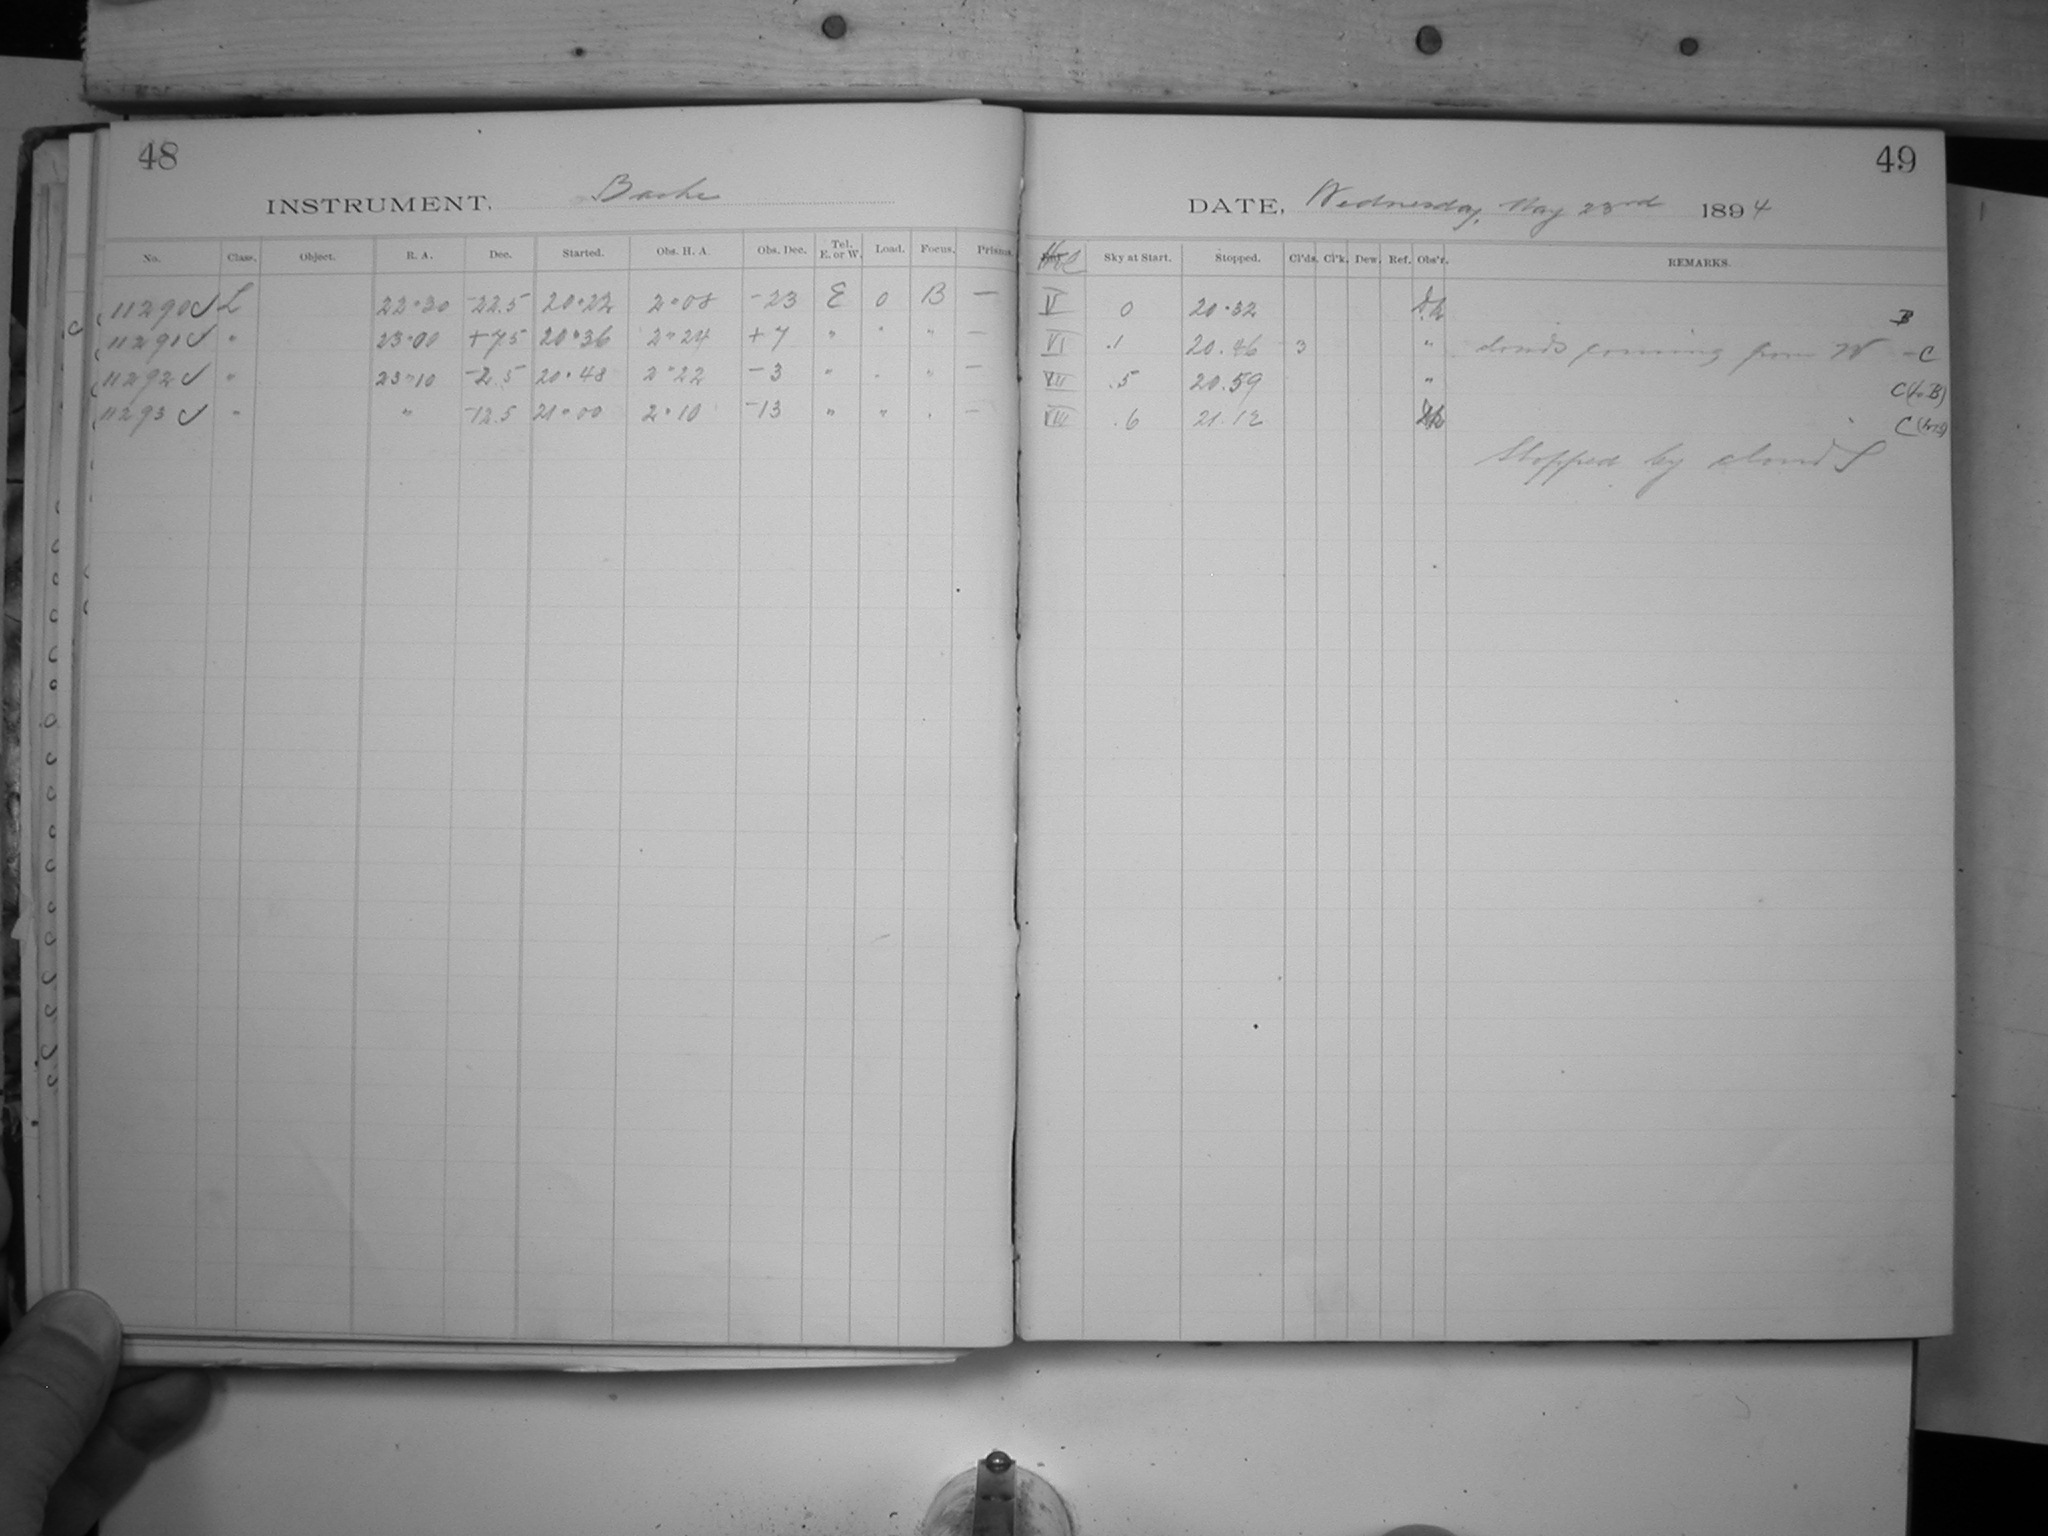 48
INSTRUMENT. Bache
No. Class. Object. R. A. Dec. Started. Obs. H. A. Obs. Dec. Tel. E. or W. Load. Focus. Prisms.
11290 L 22 30 -22.5 20 22 2 08 -23 E 0 B —
11291 " 23 00 +7.5 20 36 2 24 +7 " " " —
11292 " 23 10 -2.5 20 48 2 22 -3 " " " —
11293 " " -12.5 21 00 2 10 -13 " " " —
49
DATE, Wednesday, May 23rd 1894
Sky at Start. Stopped. Cl'ds. Cl'k. Dew. Ref. Obs'r. REMARKS.
V 0 20.32 B
VI .1 20.46 3 " clouds coming from W - C
VII .5 20.59 " C (for B)
VIII .6 21.12 C
Stopped by clouds